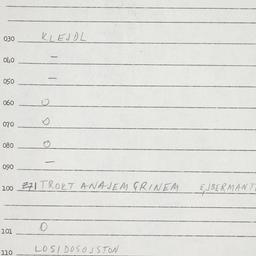 030 KLEJDL
040 –
050 –
060 O
070 O
080 O
090 –
100 271 TROKT ANAJEM GRINEM
101 O
110 LOSIDOSOJSTON